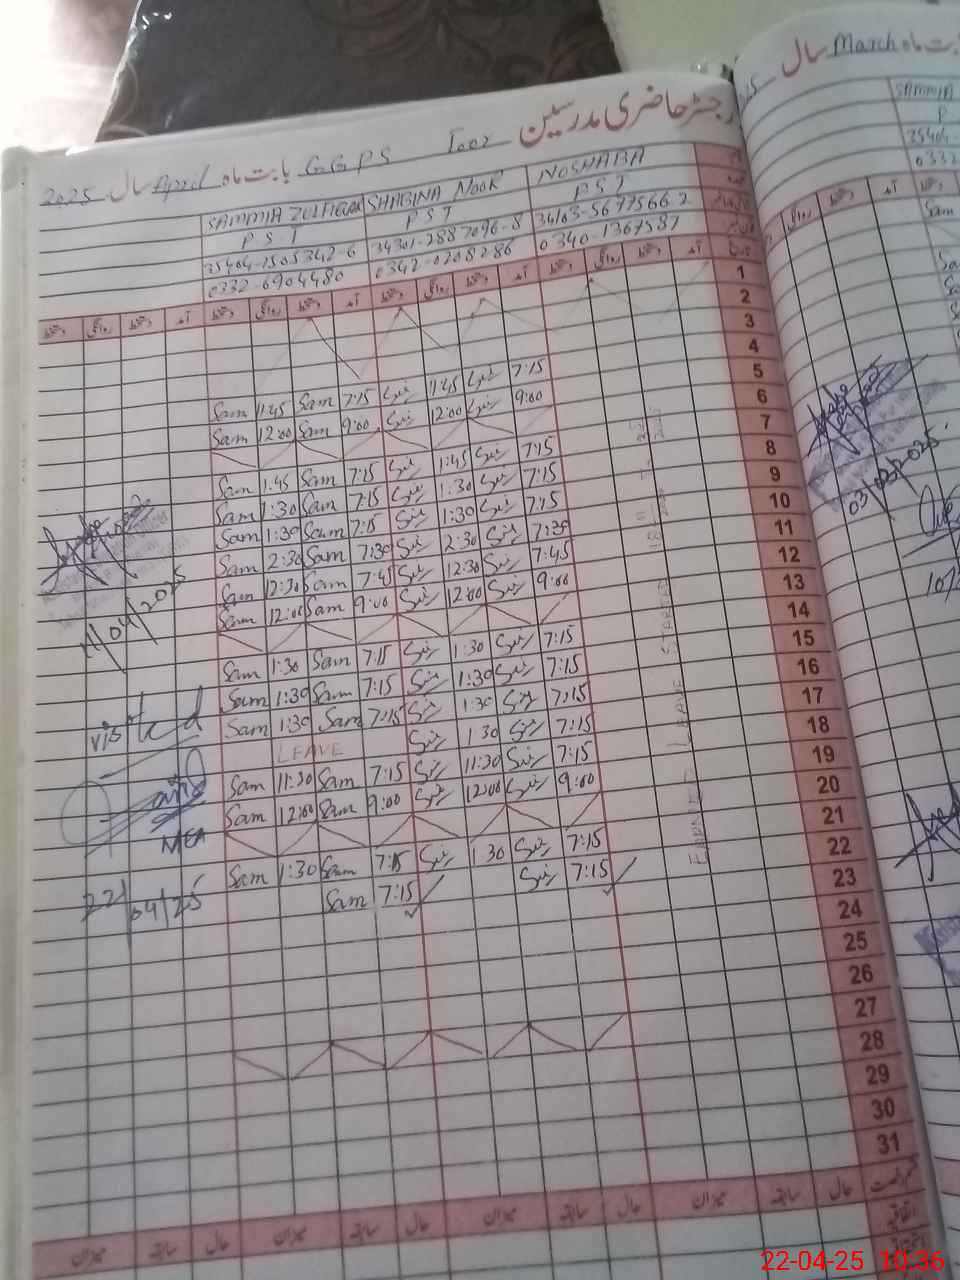 رجسٹر حاضری مدرسین
بابت ماہ March سال
G G P S Toor بابت ماہ April سال 2025
NOSHABA
SHABINA NOOR
SAMMIA ZULFIQAR
P S T
P S T
P S T
34103-5677566-2
34301-2887096-8
35404-1505342-6
0340-1367587
0342-0208286
0332-6904480
SAMMIA
P
35404-
0332
آمد دستخط روانگی دستخط آمد دستخط روانگی دستخط آمد دستخط روانگی دستخط آمد دستخط روانگی دستخط
1
2
3
4
5 7:15 11:45 7:15 Sam 11:45 Sam
6 9:00 12:00 9:00 Sam 12:00 Sam
7
8 7:15 1:45 7:15 Sam 1:45 Sam
9 7:15 1:30 7:15 Sam 1:30 Sam
10 7:15 1:30 7:15 Sam 1:30 Sam
11 7:30 2:30 7:30 Sam 2:30 Sam
12 7:45 12:30 7:45 Sam 12:30 Sam
13 9:00 12:00 9:00 Sam 12:00 Sam
14
15 7:15 1:30 7:15 Sam 1:30 Sam
16 7:15 1:30 7:15 Sam 1:30 Sam
17 7:15 1:30 7:15 Sam 1:30 Sam
18 7:15 1:30 LEAVE
19 7:15 11:30 7:15 Sam 11:30 Sam
20 9:00 12:00 9:00 Sam 12:00 Sam
21
22 7:15 1:30 7:15 Sam 1:30 Sam
23 7:15 7:15 Sam
24
25
26
27
28
29
30
31
EARNED LEAVE STARTED
11/04/2025
visited
MEA
22/04/25
03/03/2025
10/
حال سابقہ میزان حال سابقہ میزان حال سابقہ میزان حال سابقہ میزان
22-04-25 10:36